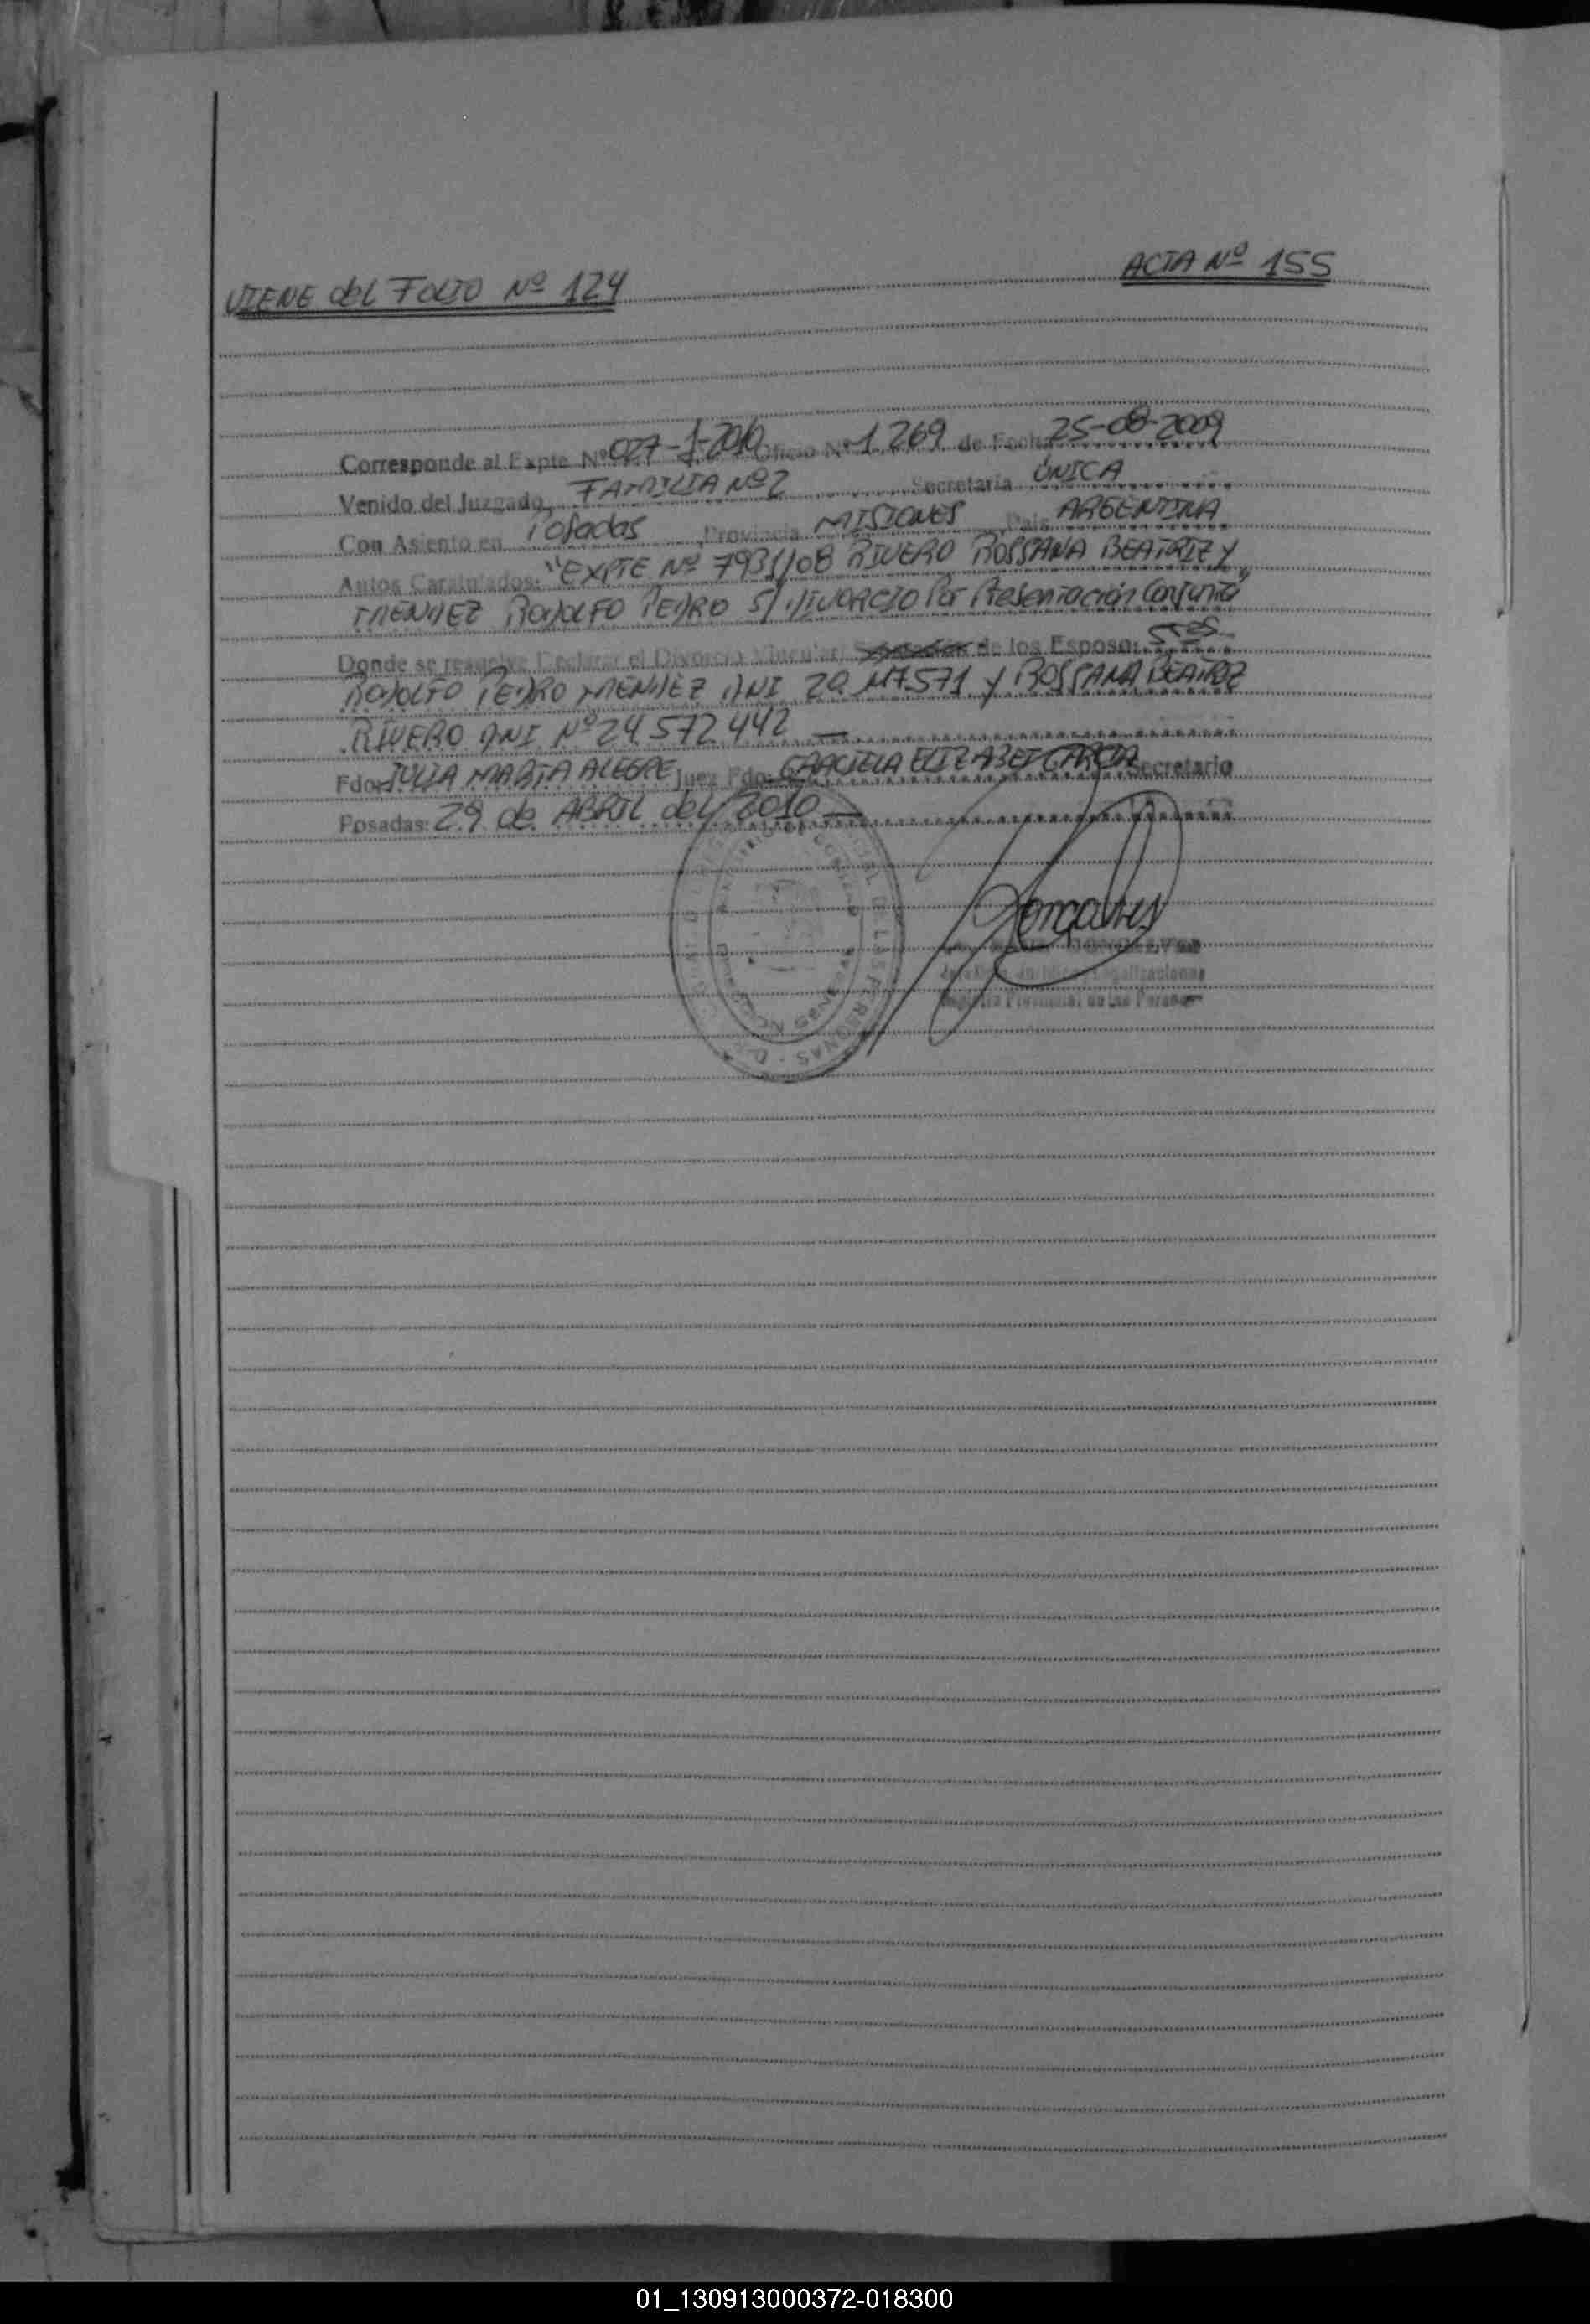 VIENE del FOLIO Nº 124
ACTA Nº 155
Corresponde al Expte Nº 027-J-2010 Oficio Nº 1.269 de Fecha 25-08-2009
Venido del Juzgado FAMILIA Nº 2 Secretaria ÚNICA
Con Asiento en Posadas ,Provincia MISIONES ,Pais ARGENTINA
Autos Caratulados: "EXPTE Nº 7931/08 RIVERO ROSSANA BEATRIZ y
MENDEZ RODOLFO PEDRO S/ DIVORCIO Por Presentación Conjunta"
Donde se resuelve Declarar el Divorcio Vincular de los Esposos
RODOLFO PEDRO MENDEZ DNI 20.117.571 y ROSSANA BEATRIZ
RIVERO DNI Nº 24.572.442 —
Fdo: JULIA MARIA ALEGRE Juez Fdo: GRACIELA ELIZABET GARCIA Secretario
Posadas: 29 de ABRIL del 2010 —
Registro Provincial de las Personas
01_130913000372-018300